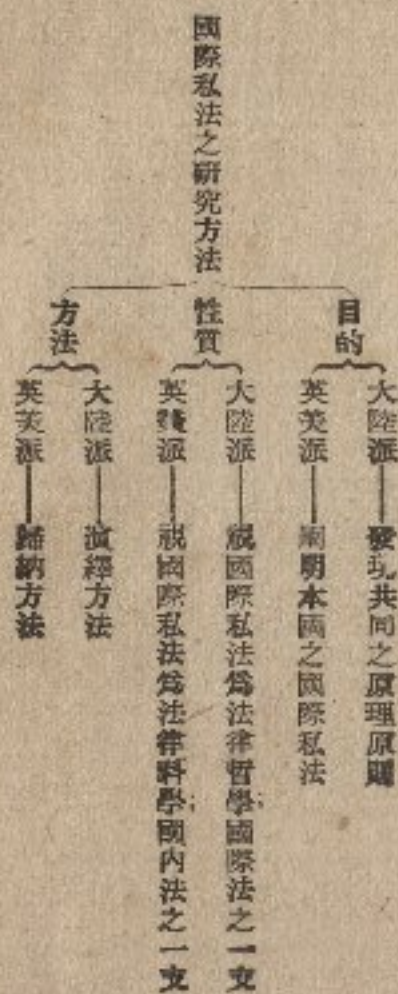 國際私法之研究方法
目的
大陸派——發現共同之原理原則
英美派——闡明本國之國際私法
性質
大陸派——視國際私法爲法律哲學;國際法之一支
英美派——視國際私法爲法律科學;國內法之一支
方法
大陸派——演繹方法
英美派——歸納方法